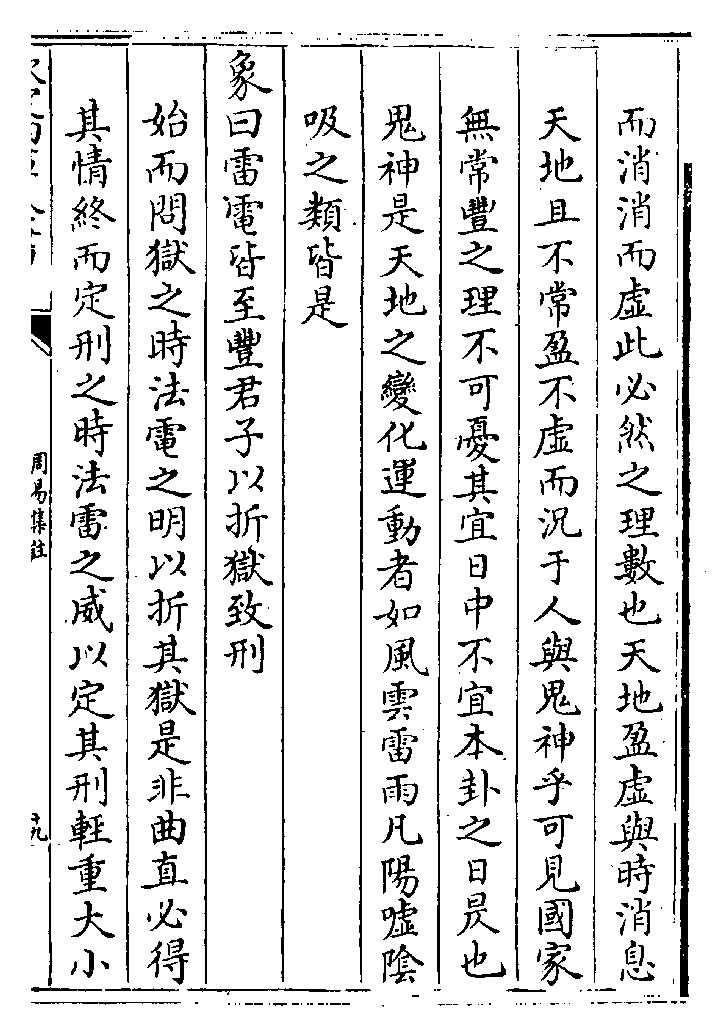 而消消而虛此必然之理數也天地盈虛與時消息
天地且不常盈不虛而況于人與鬼神乎可見國家
無常豐之理不可憂其宜日中不宜本卦之日昃也
鬼神是天地之變化運動者如風雲雷雨凡陽噓陰
吸之類皆是
象曰雷電皆至豐君子以折獄致刑
始而問獄之時法電之明以折其獄是非曲直必得
其情終而定刑之時法雷之威以定其刑輕重大小
周易集註
十九